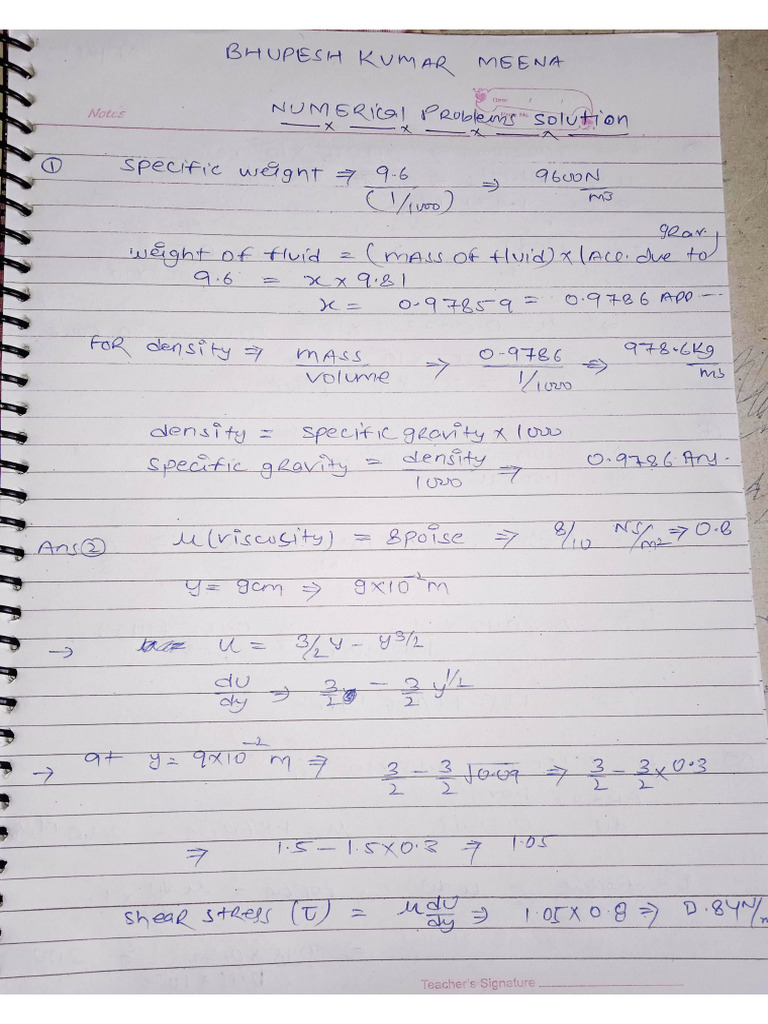 BHUPESH KUMAR MEENA
Notes
NUMERical Problems solution
① specific weight ⇒ 9.6/(1/1000) ⇒ 9600N/m3
grav.
weight of fluid = (mass of fluid) x (Acc. due to
9.6 = x x 9.81
x = 0.97859 = 0.9786 App --
FOR density ⇒ mass/volume ⇒ 0.9786/1/1000 ⇒ 978.6Kg/m3
density = specific gravity x 1000
specific gravity = density/1000 ⇒ 0.9786 Any.
Ans② μ(viscosity) = 8poise ⇒ 8/10 NS/m2 ⇒ 0.8
y = 9cm ⇒ 9x10⁻²m
→ u = 3/2 y - y3/2
du/dy ⇒ 3/2 - 3/2 y1/2
→ at y = 9x10⁻² m ⇒ 3/2 - 3/2 √0.09 ⇒ 3/2 - 3/2 x 0.3
⇒ 1.5 - 1.5x0.3 ⇒ 1.05
shear stress (τ) = μ du/dy ⇒ 1.05x0.8 ⇒ 0.84N/m
Teacher's Signature